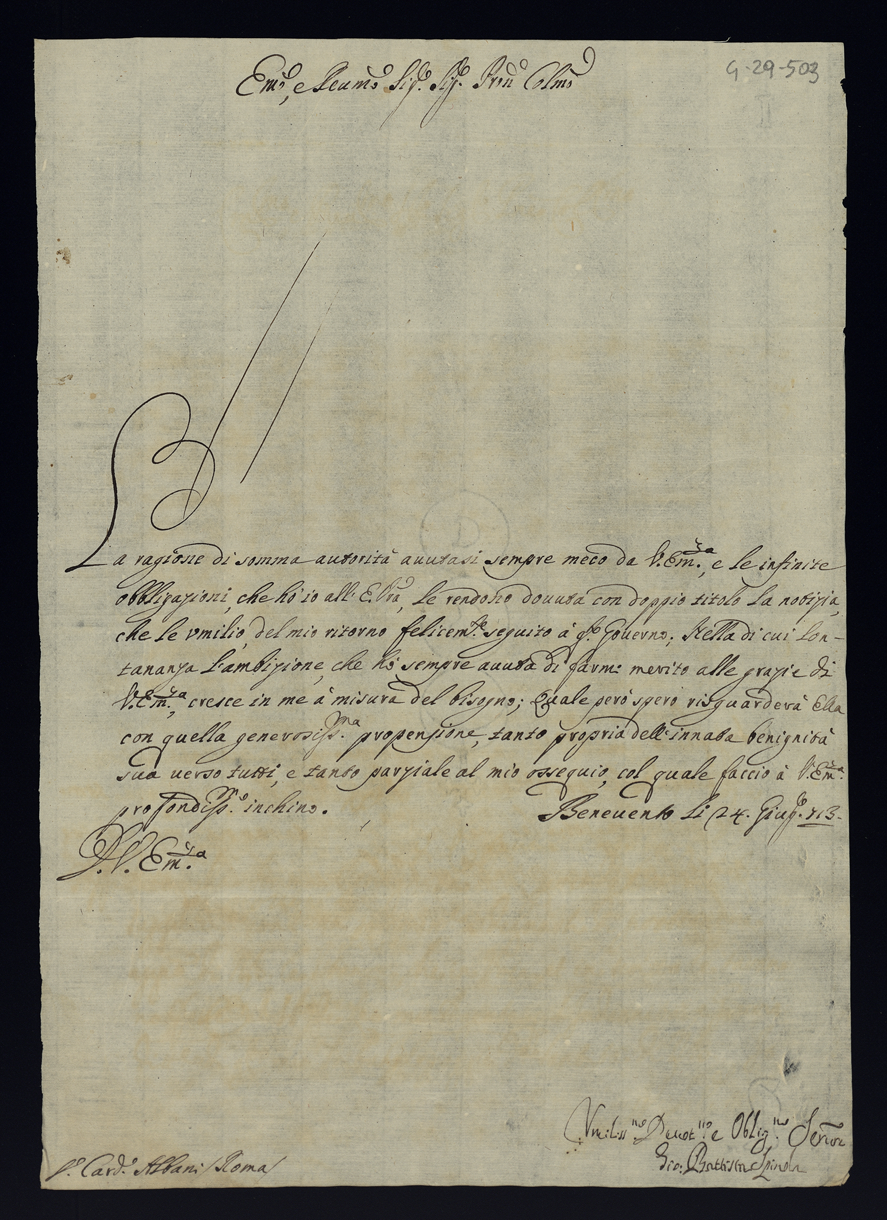 G-29-503
II
Em:o, e Reu:mo Sig:r Sig:r Pron Colmo
La ragione di somma autorità auutasi sempre meco da V. Em:za, e le infinite
obbligazioni, che hò io all'E. Vra, le rendono douuta con doppio titolo la notizia,
che le vmilio, del mio ritorno felicem:te seguito à q:to Gouerno; Nella di cui lon-
tananza l'ambizione, che hò sempre auuta di farmi merito alle grazie di
V. Em:za, cresce in me à misura del bisogno; Quale però spero risguarderà Ella
con quella generosiss:ma propensione, tanto propria dell'innata benignità
sua verso tutti, e tanto parziale al mio ossequio, col quale faccio à V. Em:za
profondiss:o inchino.
Beneuento li 24. Giug:o 713.
D. V. Em:za
Vmiliss:mo Deuot:mo e Oblig:mo Seruor
Gio: Battista Spinola
S:r Card:e Albani /Roma/